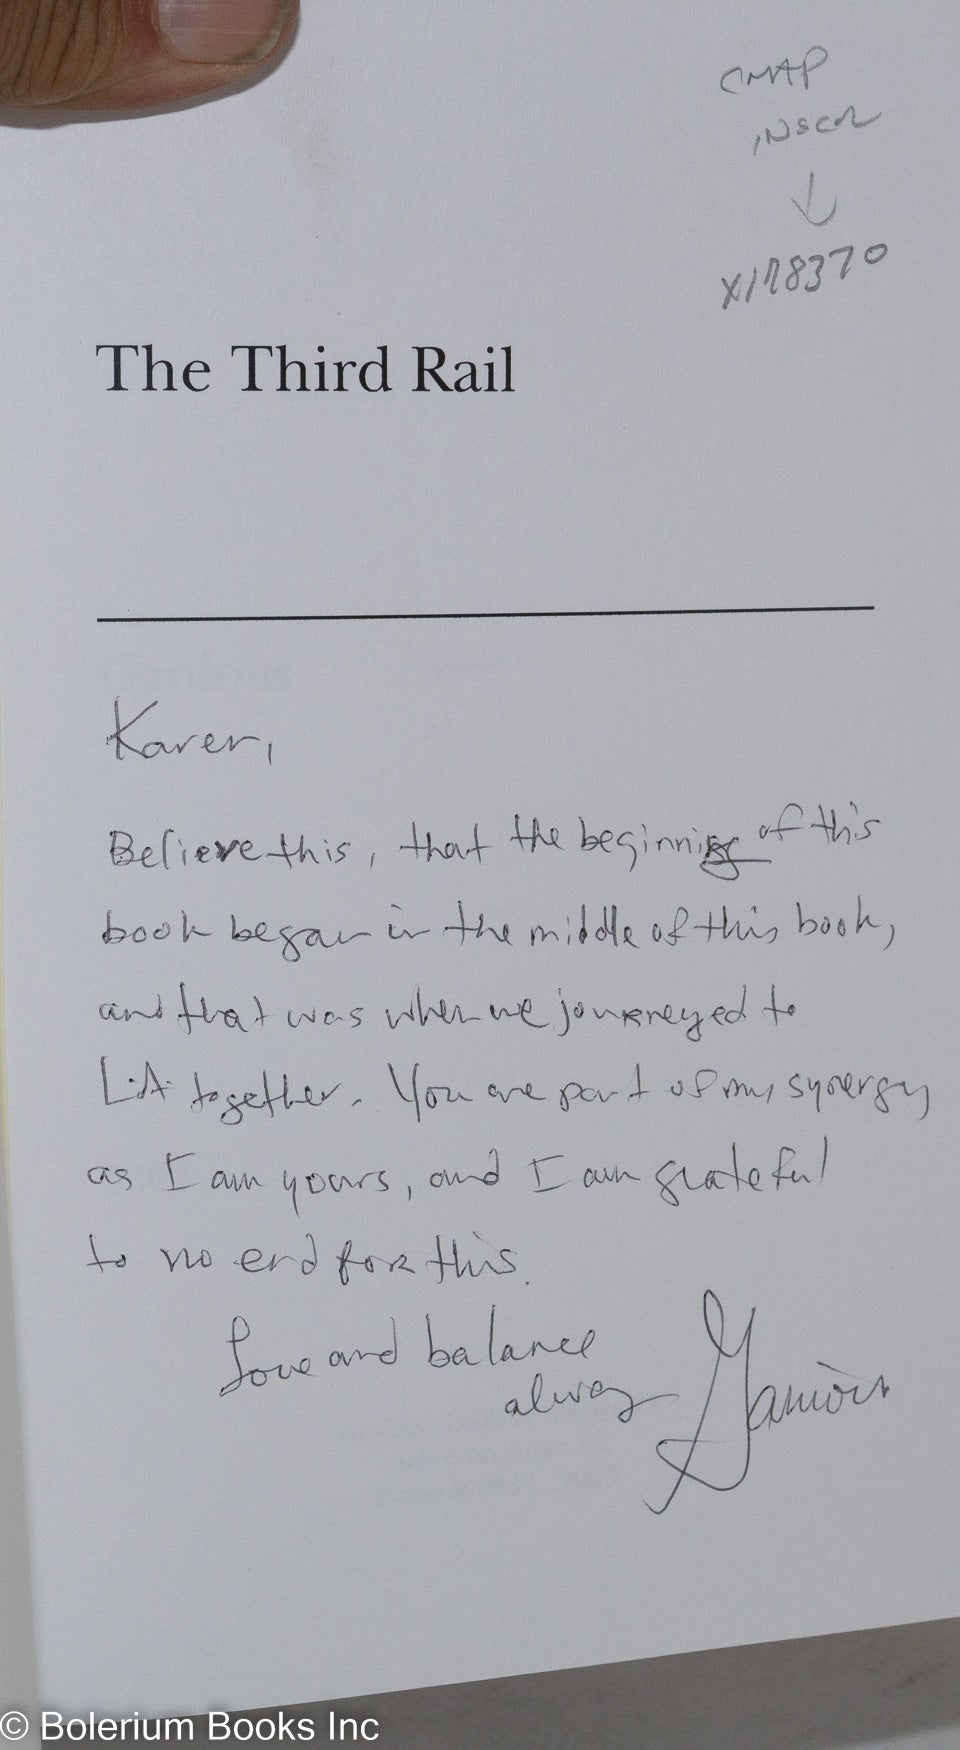 CHAP
INSCR
↓
X178370
The Third Rail
Karen,
Believe this, that the beginning of this
book began in the middle of this book,
and that was when we journeyed to
L.A. together. You are part of my synergy
as I am yours, and I am grateful
to no end for this.
Love and balance
always
Ganious
© Bolerium Books Inc